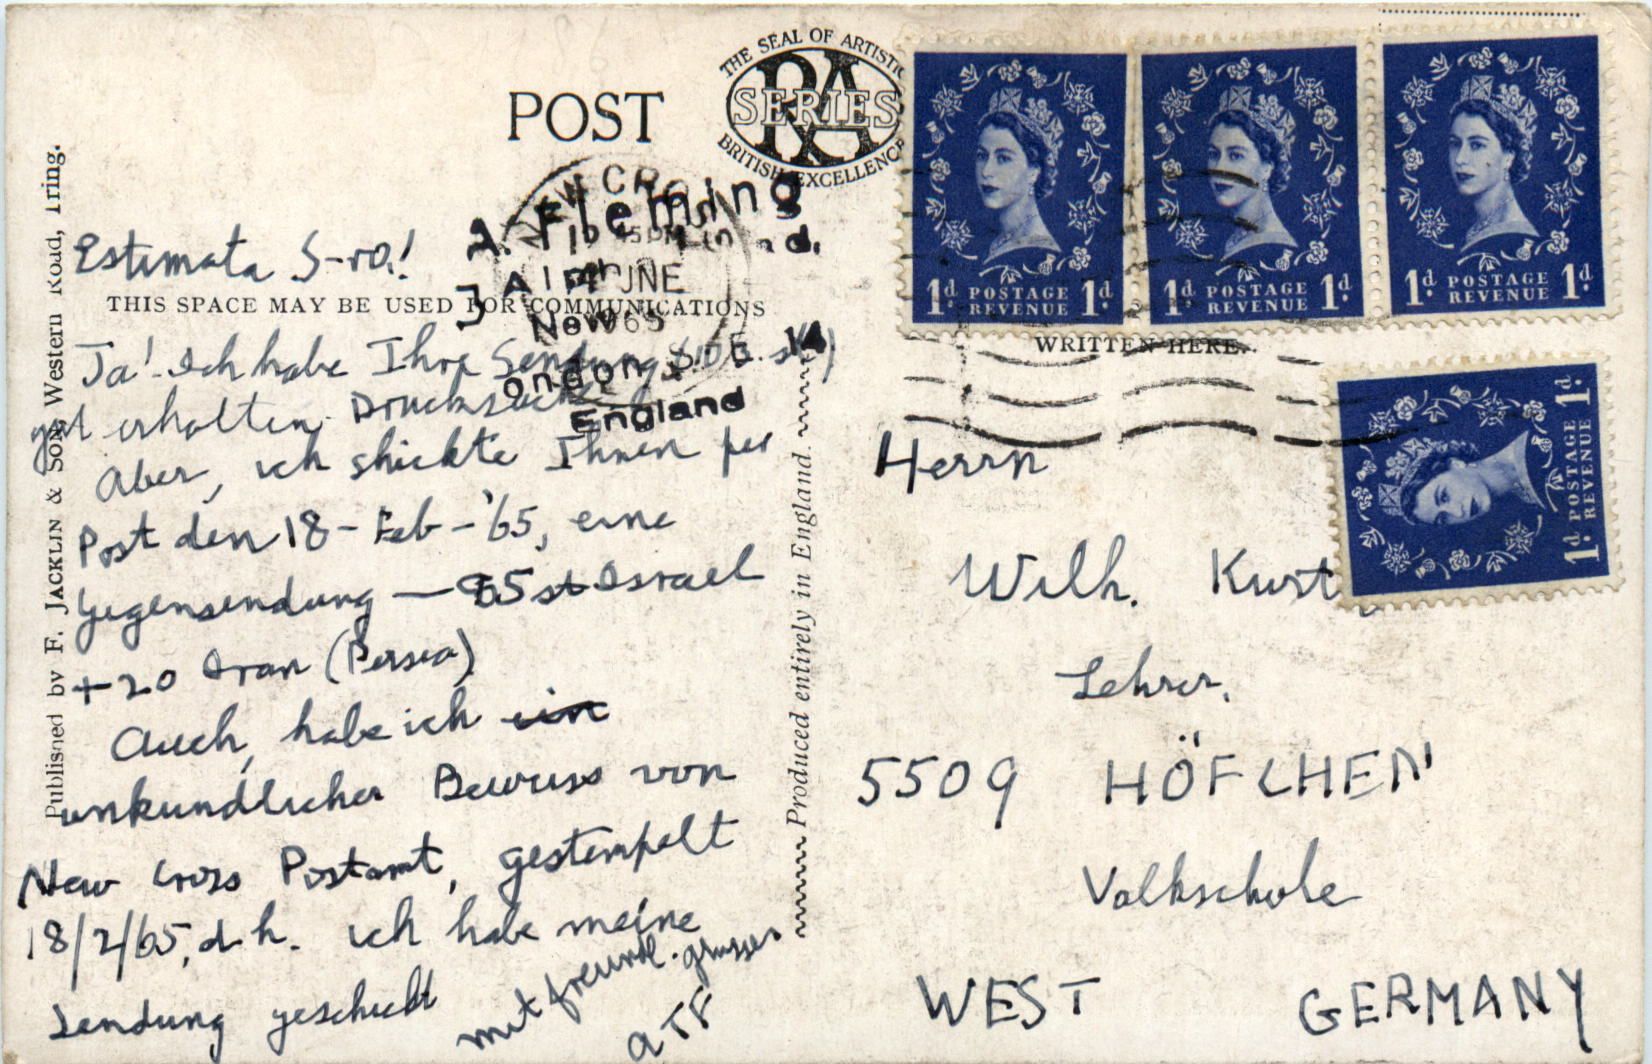 POST
THE SEAL OF ARTISTIC
RA
SERIES
BRITISH EXCELLENCE
A. Fleming
NEW CROSS
JNE
New
ondon S. E. 14
England
Estimata S-ro!
THIS SPACE MAY BE USED FOR COMMUNICATIONS
Ja! Ich habe Ihre Sendung
gut erhalten. Drucksache
Aber, ich shickte Ihnen per
Post den 18-Feb-'65, eine
Gegensendung — 65 st Israel
+ 20 Iran (Persia)
Auch, habe ich ein
unkundlicher Bewuss von
New Cross Postamt, gestempelt
18/2/65, d.h. ich habe meine
Sendung geschickt
mit freundl. grussen
ATF
Published by F. JACKLIN & SONS, Western Road, Tring.
Produced entirely in England.
1d POSTAGE REVENUE 1d
1d POSTAGE REVENUE 1d
1d POSTAGE REVENUE 1d
1d POSTAGE REVENUE 1d
WRITTEN HERE.
Herrn
Wilh. Kurt
Lehrer,
5509 HÖFCHEN
Volkschule
WEST GERMANY